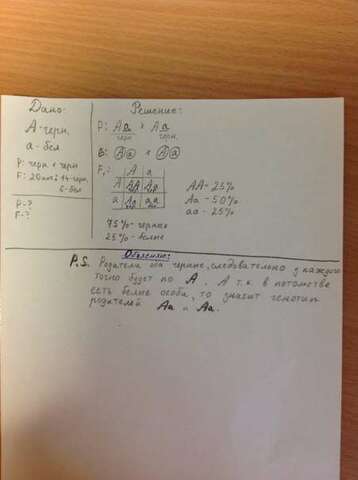 Дано:
А-черн.
а-бел
Р: черн х черн
F: 20шт: 14-черн,
6-бел
Р-?
F-?
Решение:
Р: Аа х Аа
черн. черн.
G: А а х А а
F₁: А а
А АА Аа
а Аа аа
АА-25%
Аа-50%
аа-25%
75%-черные
25%-белые
Объясняю:
P.S. Родители оба черные, следовательно у каждого
точно будет по А. А т.к в потомстве
есть белые особи, то значит генотип
родителей Аа и Аа.